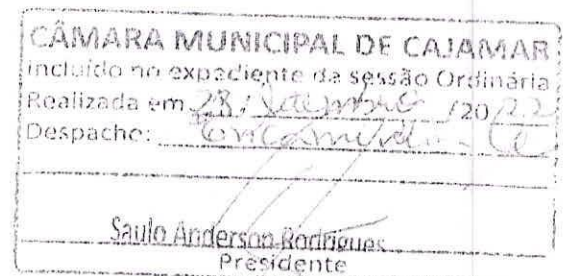 CÂMARA MUNICIPAL DE CAJAMAR
incluído no expediente da sessão Ordinária
Realizada em 28 / Setembro /2022
Despacho: Encaminha-se
Saulo Anderson Rodrigues
Presidente